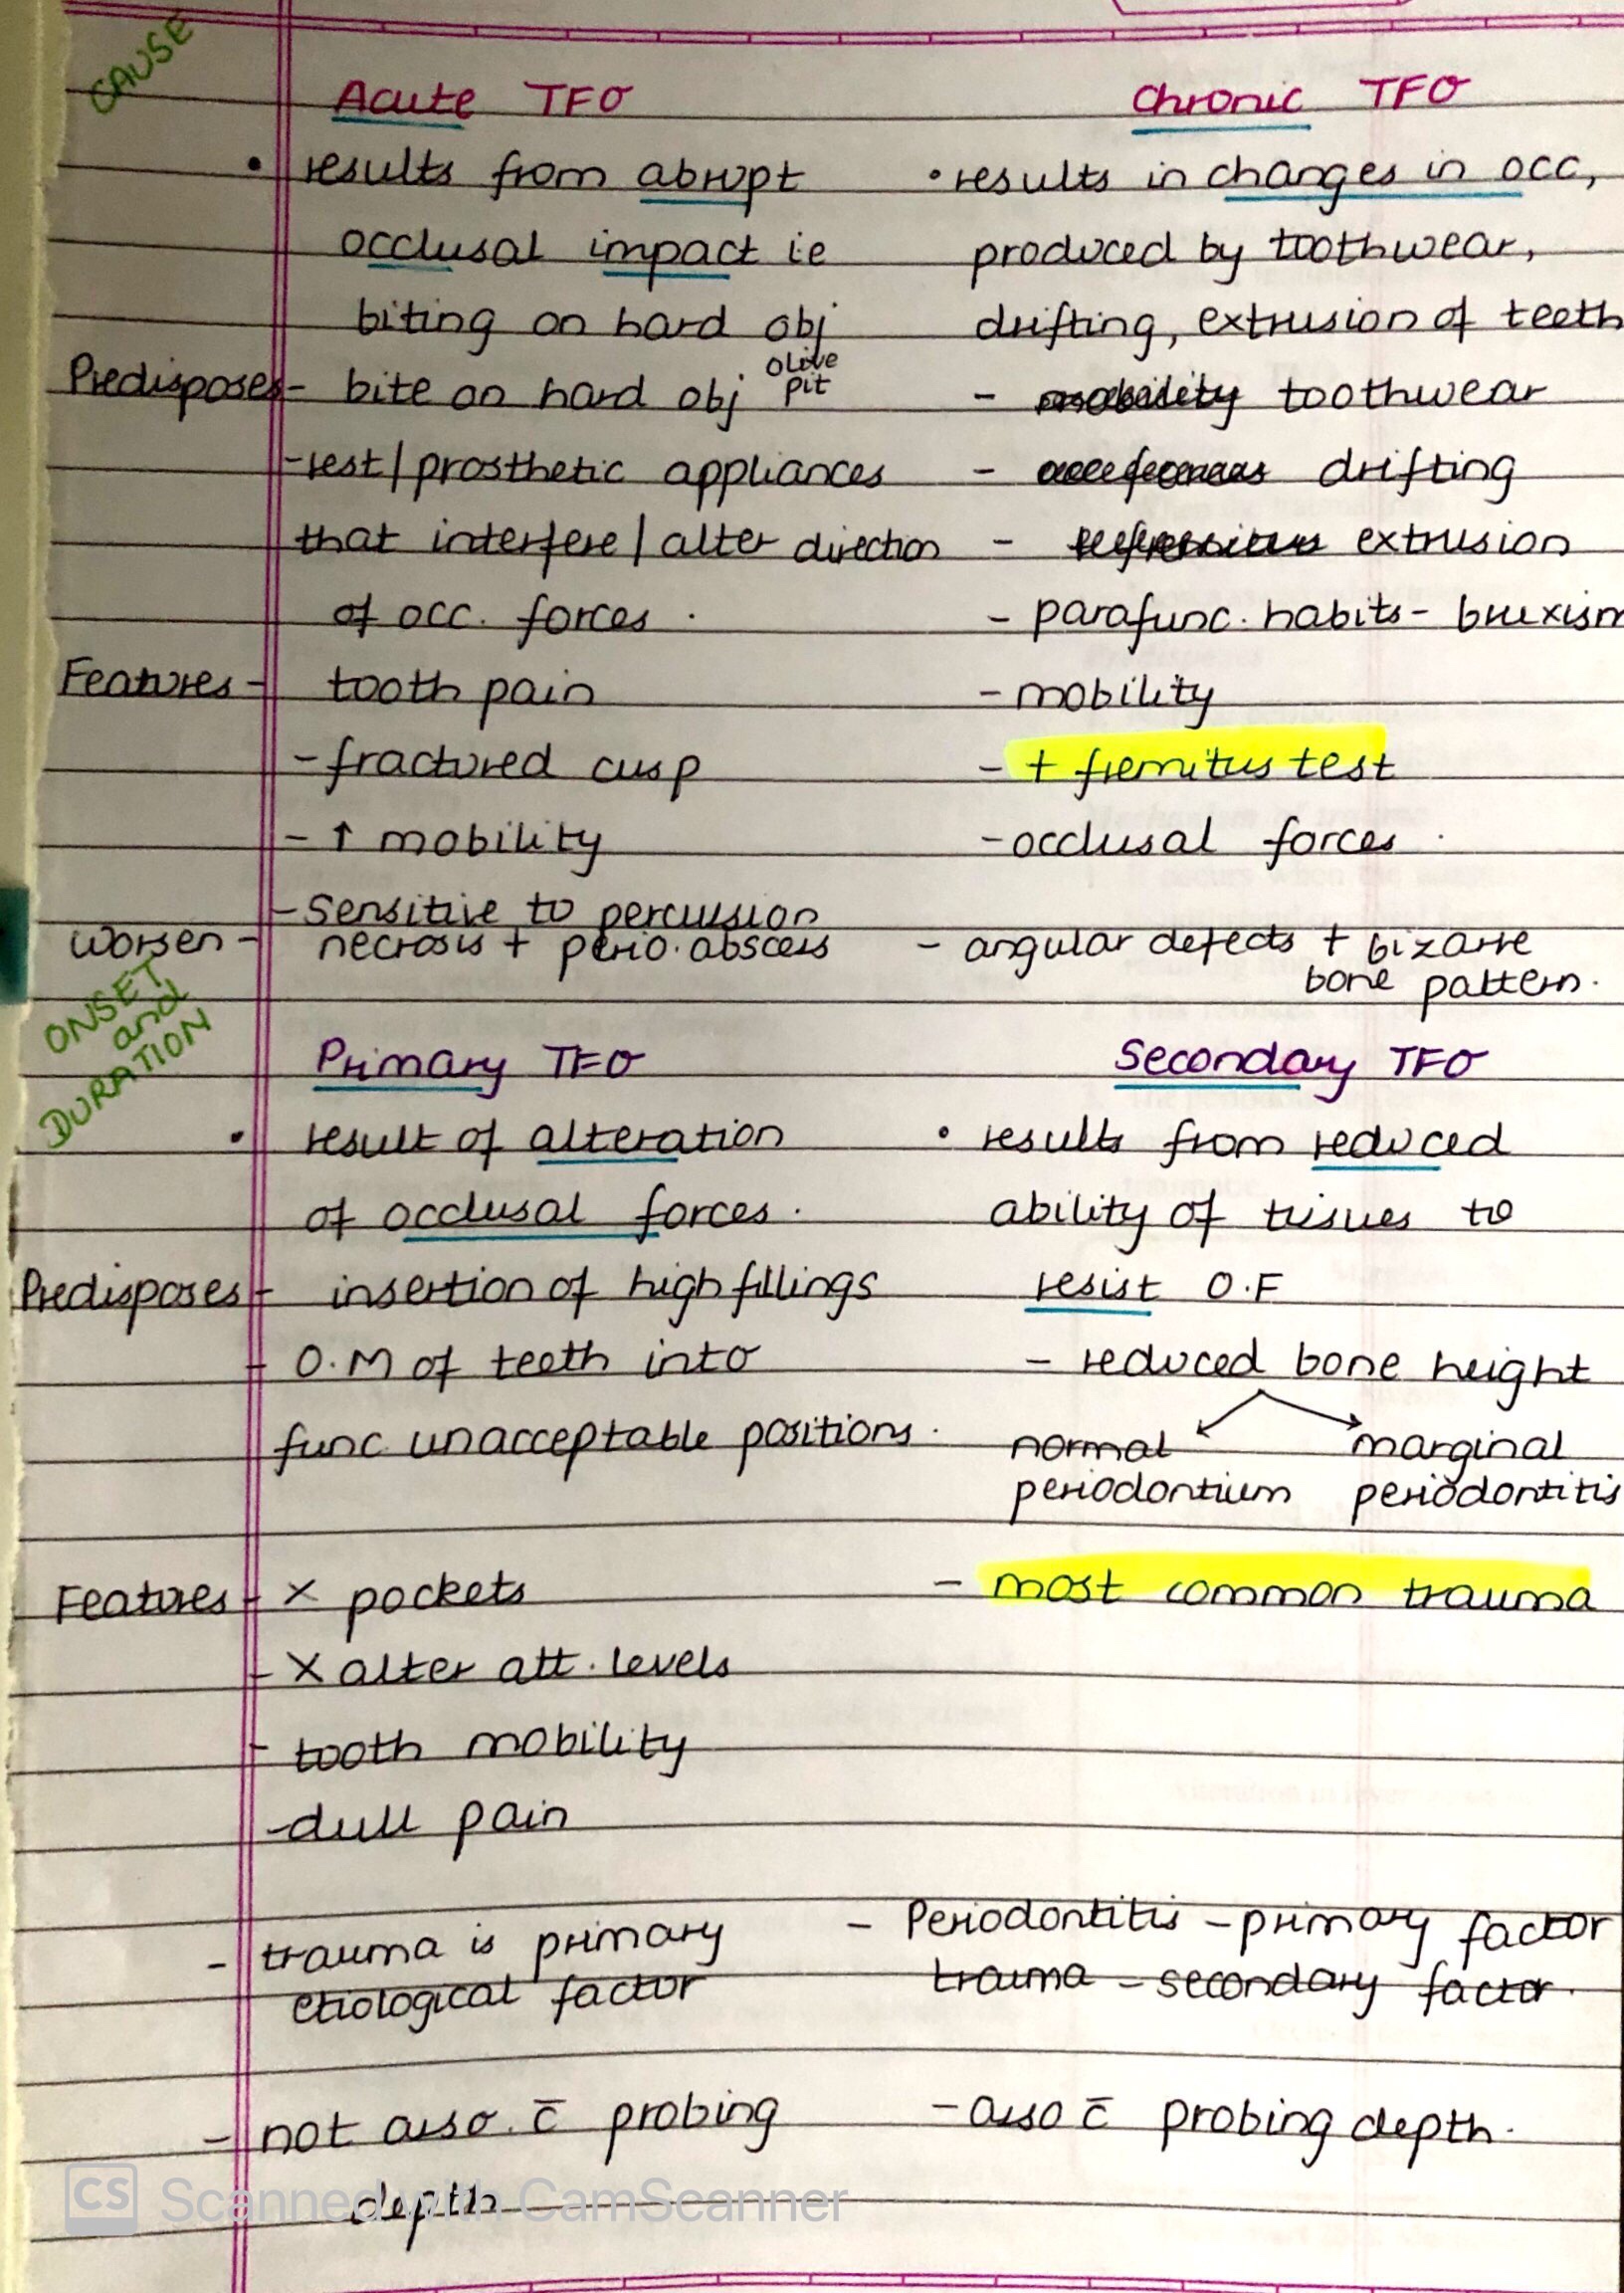 CAUSE
Acute TFO Chronic TFO
• results from abrupt • results in changes in occ,
occlusal impact ie produced by toothwear,
biting on hard obj drifting, extrusion of teeth
Predisposes - bite on hard obj olive pit - toothwear
- rest/prosthetic appliances - drifting
that interfere/alter direction - extrusion
of occ. forces. - parafunc. habits - bruxism
Features - tooth pain - mobility
- fractured cusp - + fremitus test
- ↑ mobility - occlusal forces.
- sensitive to percussion
Worsen - necrosis + perio. abscess - angular defects + bizarre
bone pattern.
ONSET
and
DURATION
Primary TFO Secondary TFO
• result of alteration • results from reduced
of occlusal forces. ability of tissues to
Predisposes - insertion of high fillings resist O.F
- O.M of teeth into - reduced bone height
func unacceptable positions. normal marginal
periodontium periodontitis
Features - X pockets - most common trauma
- X alter att. levels
- tooth mobility
- dull pain
- trauma is primary - Periodontitis - primary factor
etiological factor trauma - secondary factor.
- not asso. c̄ probing - asso c̄ probing depth.
depth
CS Scanned with CamScanner